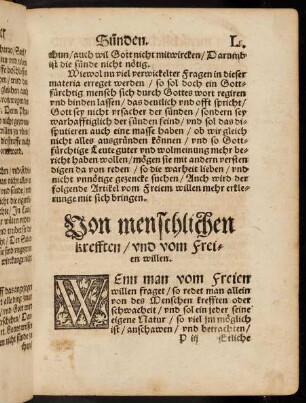 Sünden. L.
thun/auch wil Gott nicht mitwircken/ Darumb
ist die sünde nicht nötig.
Wiewol nu viel verwickelter Fragen in dieser
materia erreget werden / so sol doch ein Gott-
fürchtig mensch sich durch Gottes wort regiren
vnd binden lassen/ das deutlich vnd offt spricht/
Gott sey nicht vrsacher der sünden / sondern sey
warhafftiglich der sünden feind/ vnd sol das dis-
putieren auch eine masse haben / ob wir gleich
nicht alles ausgründen können / vnd so Gott-
fürchtige Leute guter vnd wolmeinung mehr be-
richt haben wollen/ mögen sie mit andern versten
digen da von reden / so die warheit lieben / vnd
nicht vnnötige gezencke suchen / Auch wird der
folgende Artikel vom Freien willen mehr erkle-
runge mit sich bringen.
Von menschlichen
krefften / vnd vom Frei-
en willen.
WEnn man vom Freien
willen fraget/ so redet man allein
von des Menschen krefften oder
schwacheit / vnd sol ein jeder seine
eigene Natur / so viel jm möglich
ist/ anschawen / vnd betrachten/
P iij Etliche